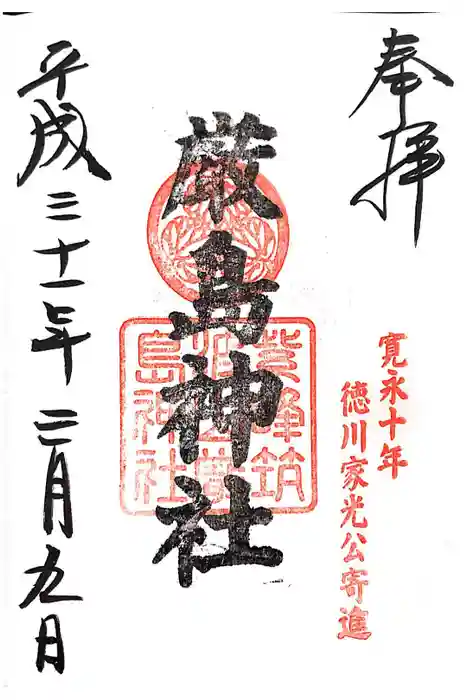 奉拝
寛永十年
徳川家光公寄進
厳島神社
平成三十一年二月九日